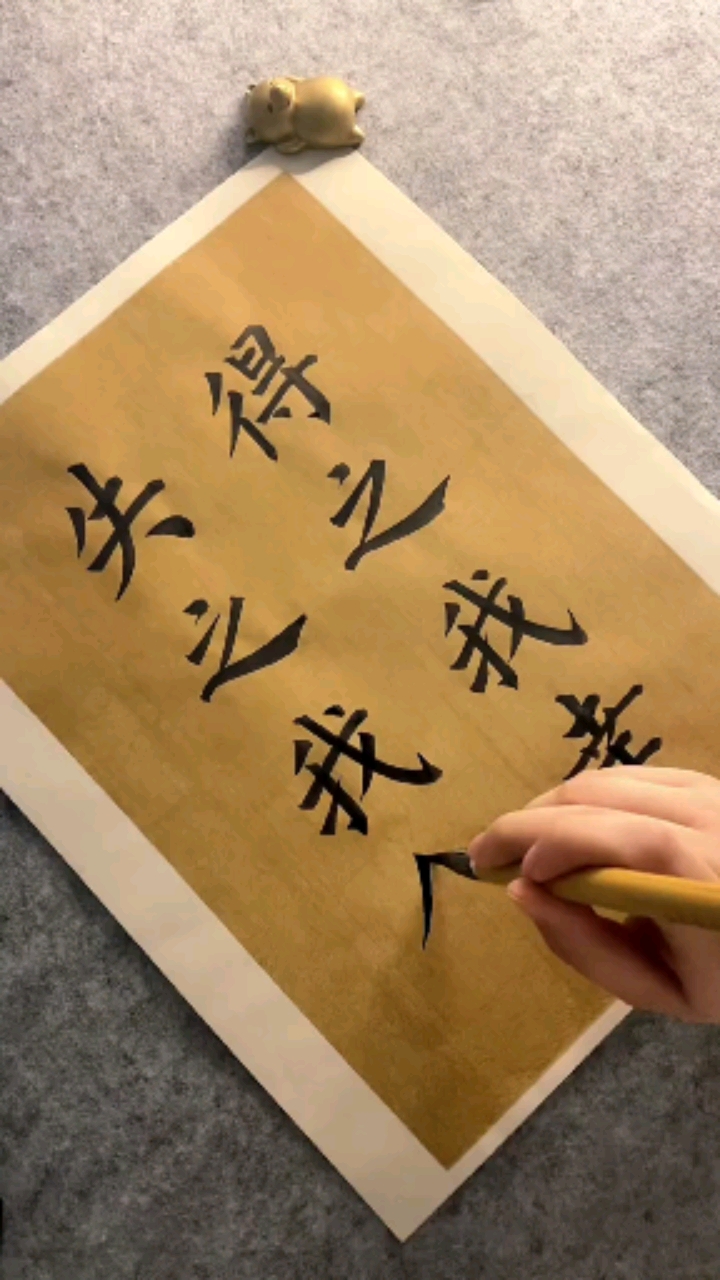 得之我幸
失之我